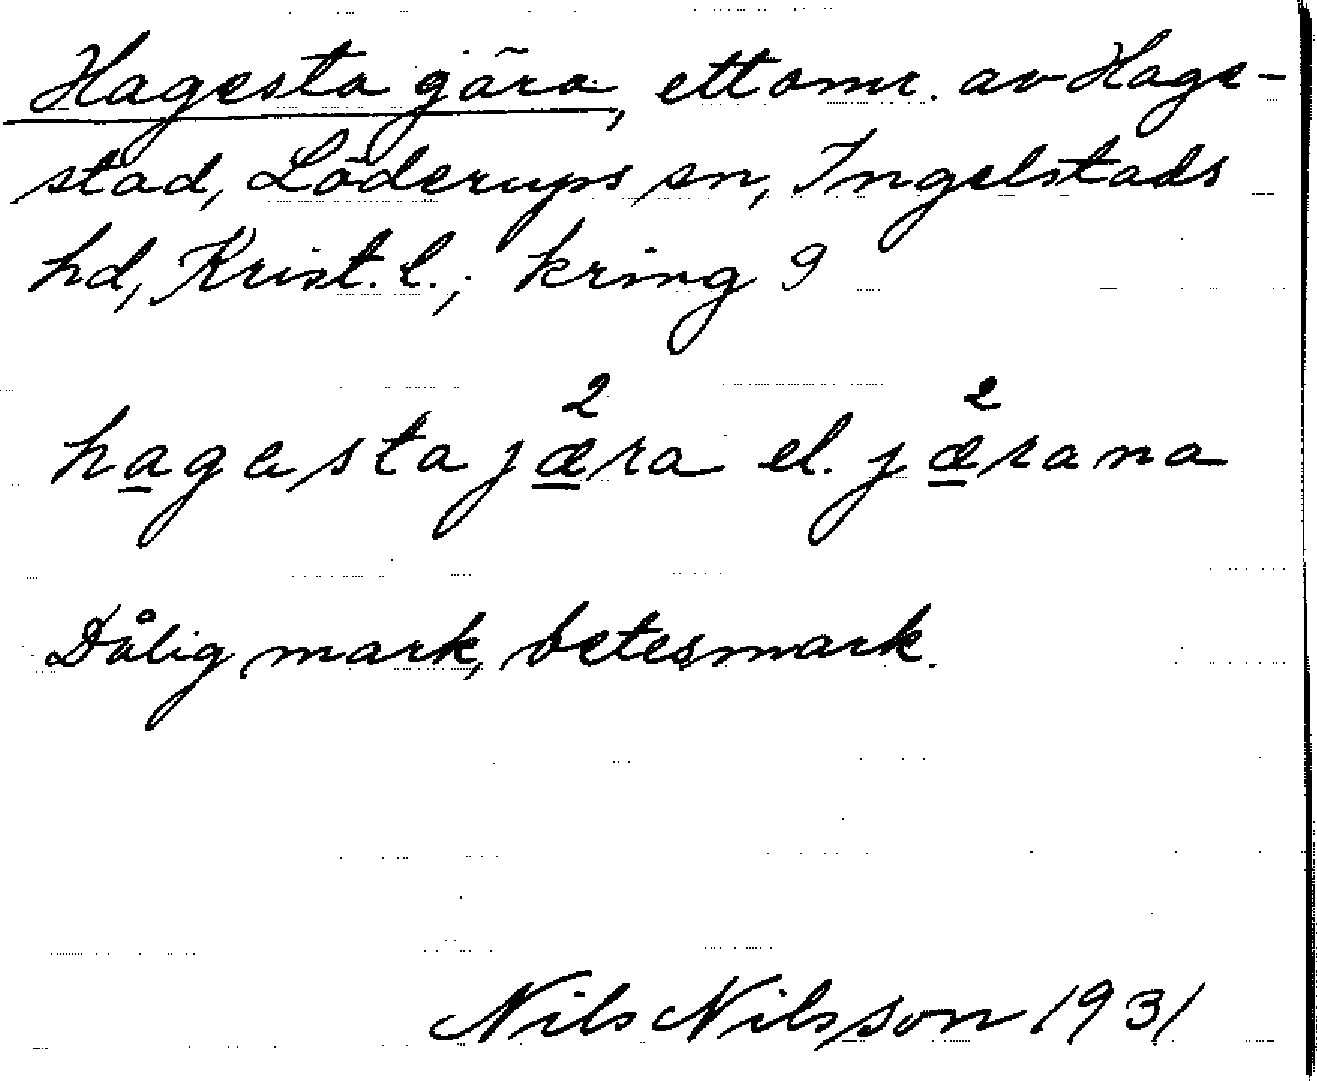 Hagesta gära, ett omr. av Hage-
stad, Löderups sn, Ingelstads
hd, Krist. l.; kring 9
hagesta jæ²ra el. jæ²rana
Dålig mark, betesmark.
Nils Nilsson 1931